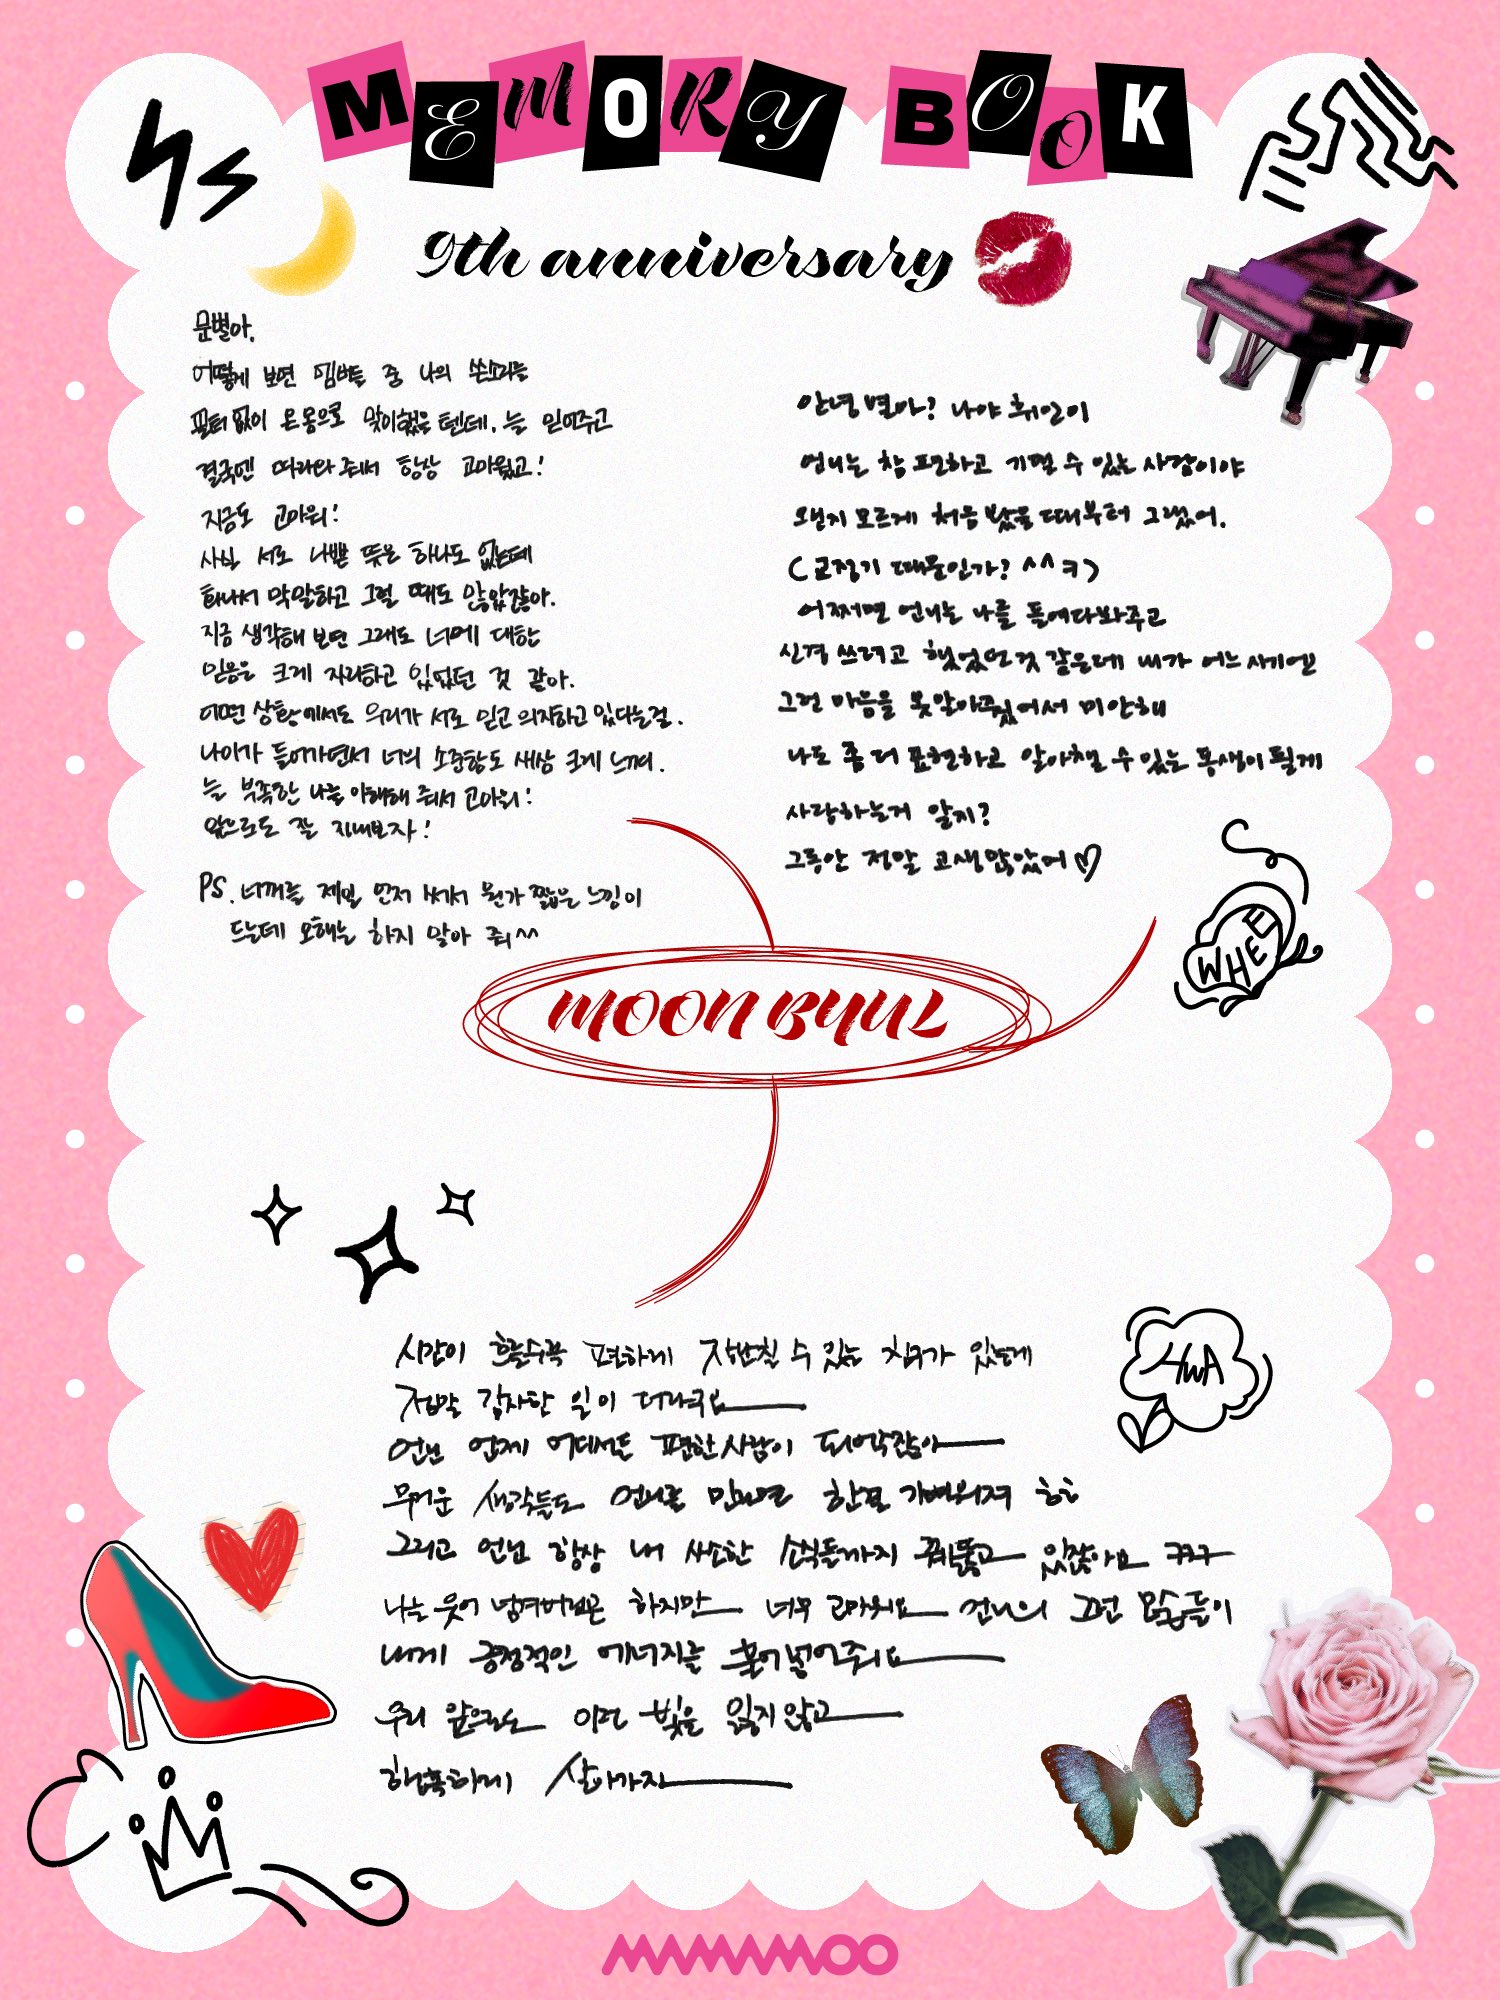 MEMORY BOOK
9th anniversary
문별아.
어떻게 보면 멤버들 중 나의 쓴소리를
필터없이 온몸으로 맞이했을텐데, 늘 믿어주고
결국엔 따라와줘서 항상 고마웠고!
지금도 고마워!
사실 서로 나쁜 뜻은 하나도 없는데
화나서 막말하고 그럴 때도 많았잖아.
지금 생각해 보면 그래도 너에 대한
믿음은 크게 자리하고 있었던 것 같아.
어떤 상황에서도 우리가 서로 믿고 의지하고 있다는걸.
나이가 들어가면서 너의 소중함도 새삼 크게 느껴.
늘 부족한 나를 이해해 줘서 고마워!
앞으로도 잘 지내보자!
PS. 너꺼를 제일 먼저 써서 뭔가 짧은 느낌이
드는데 오해는 하지 말아 줘^^
안녕 별아? 나야 휘인이
언니는 참 편하고 기댈 수 있는 사람이야
왠지 모르게 처음 봤을 때부터 그랬어.
(교정기 때문인가? ^^ㅋ)
어쩌면 언니는 나를 들여다봐주고
신경 쓰려고 했었던것 같은데 내가 어느 시기엔
그런 마음을 못알아줬어서 미안해
나도 좀 더 표현하고 알아챌 수 있는 동생이 될게
사랑하는거 알지?
그동안 정말 고생 많았어♡
WHEE
MOON BYUL
시간이 흐를수록 편하게 장난칠 수 있는 친구가 있는게
정말 감사한 일이 더라구요
언닌 언제 어데서든 편한사람이 되어갔잖아
무거운 생각들도 언니를 만나면 한결 가벼워져 ㅎㅎ
그리고 언닌 항상 내 사소한 소식들까지 꿰뚫고 있잖아요 ㅋㅋㅋ
나는 웃어 넘겨버리곤 하지만 너무 고마워요 언니의 그런 모습들이
내게 긍정적인 에너지를 불어넣어주어요
우리 앞으로도 이런 빛을 잃지않고
행복하게 살아가자
HWA
MAMAMOO